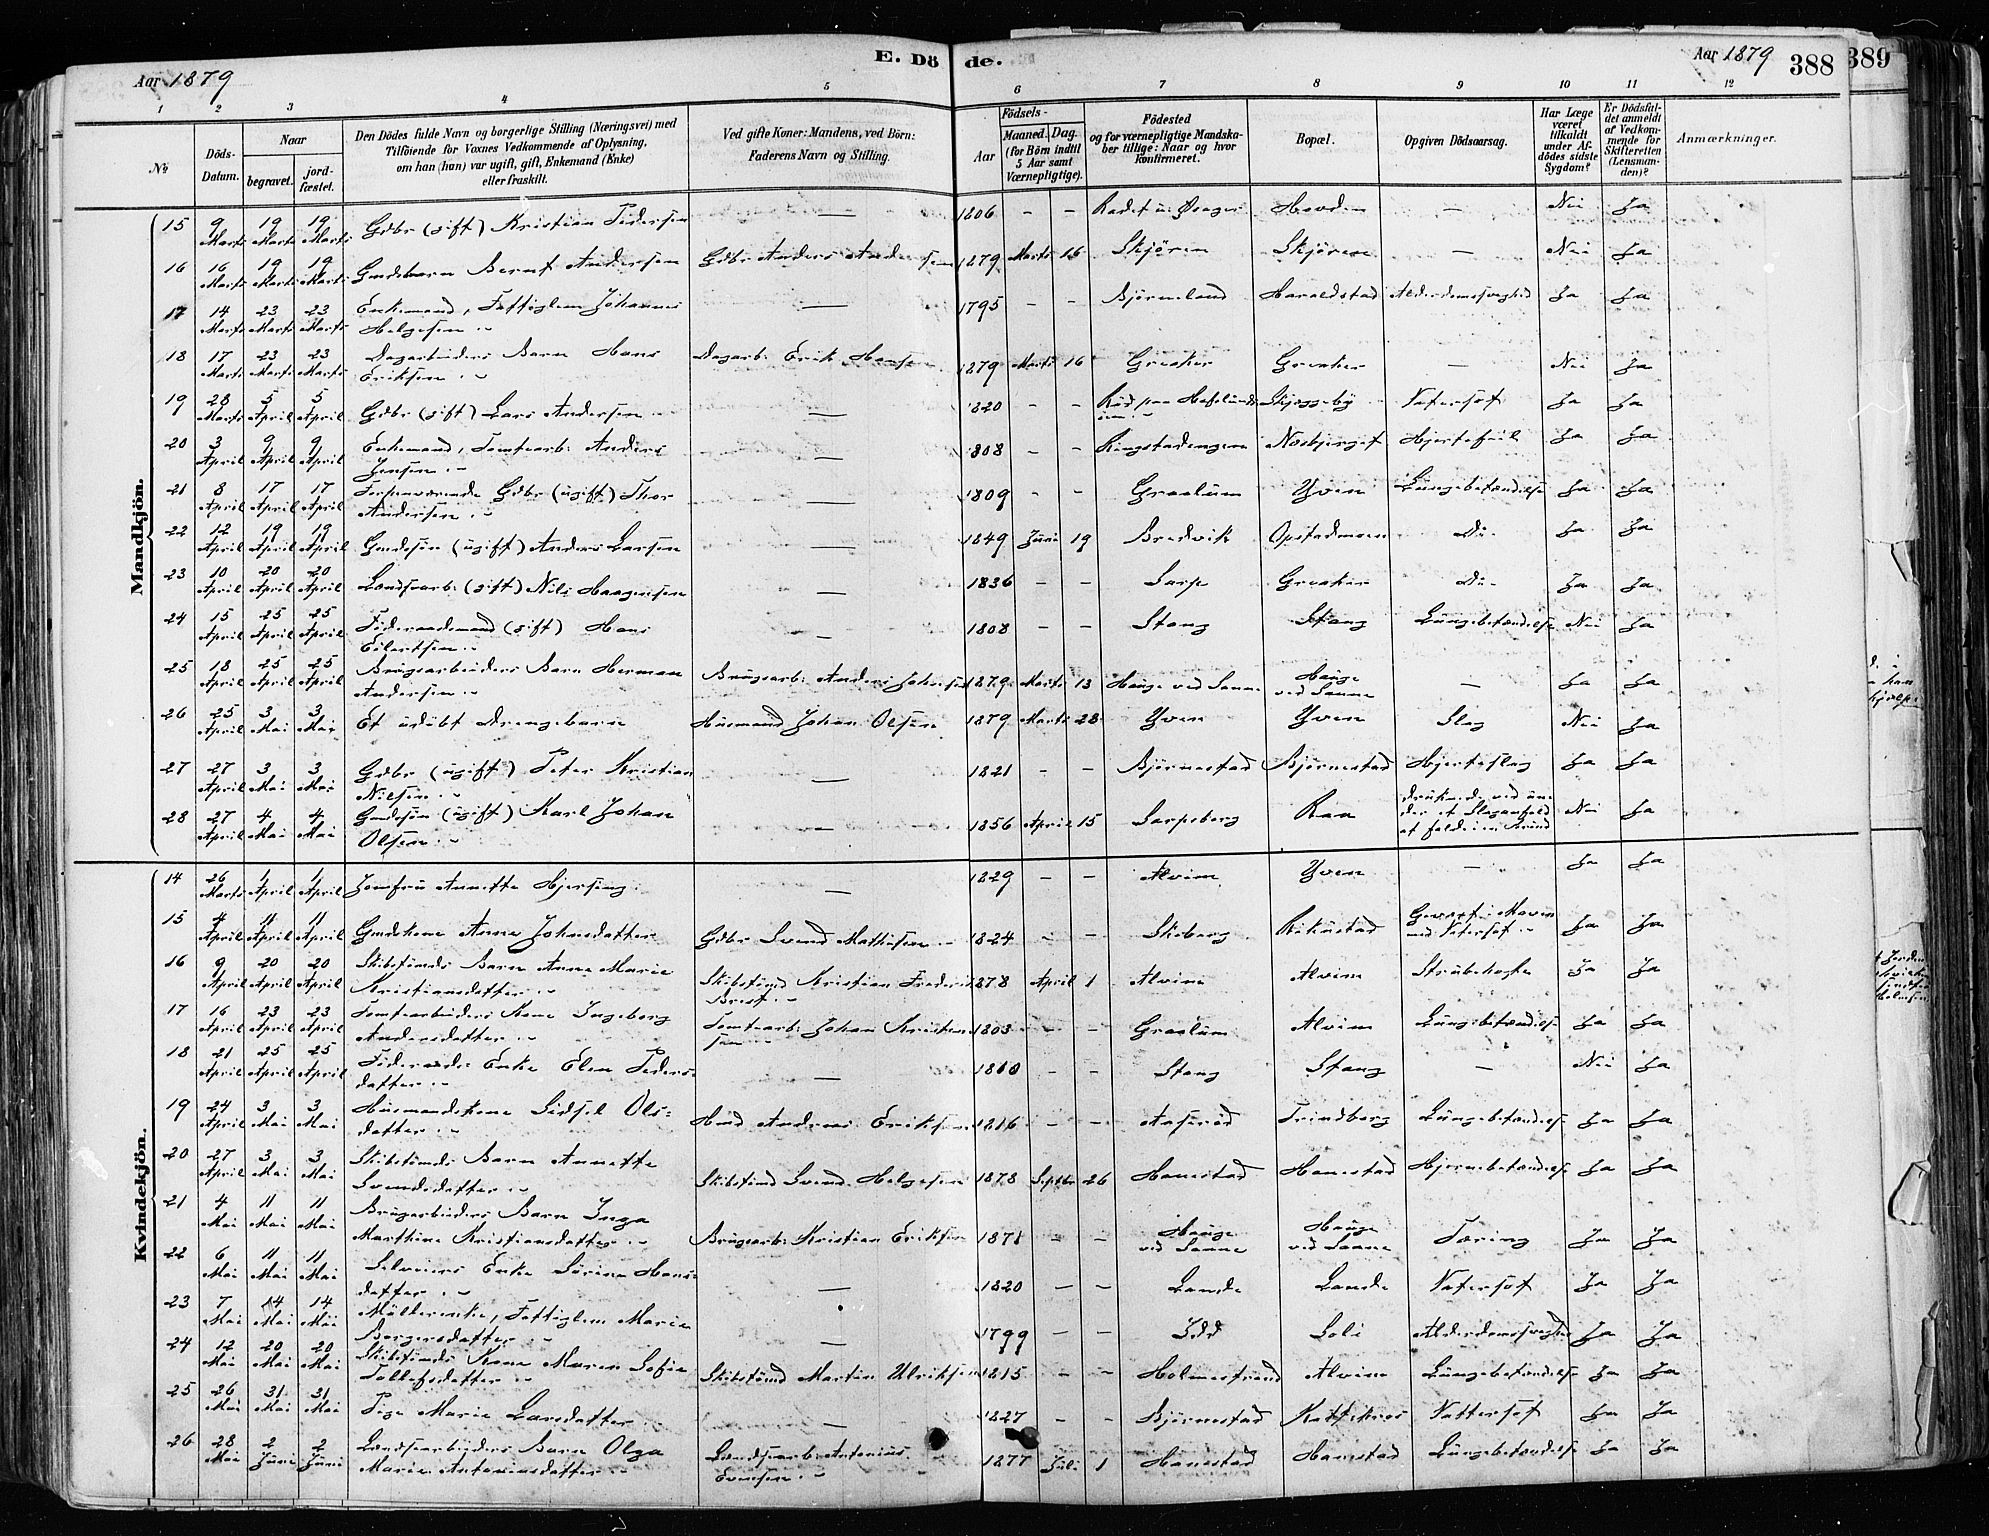 Aar 1879
E. Dö de.
Aar 1879 388 389
1 2 3 4 5 6 7 8 9 10 11 12
№
Döds-Datum.
Naar begravet. jordfæstet.
Den Dödes fulde Navn og borgerlige Stilling (Næringsvei) med
Tilföiende for Voxnes Vedkommende af Oplysning,
om han (hun) var ugift, gift, Enkemand (Enke)
eller fraskilt.
Ved gifte Koner: Mandens, ved Börn:
Faderens Navn og Stilling.
Födsels-
Aar Maaned. Dag.
(for Börn indtil
5 Aar samt
Værnepligtige).
Födested
og for værnepligtige Mandskaber tillige: Naar og hvor
Konfirmeret.
Bopæl.
Opgiven Dödsaarsag.
Har Læge været tilkaldt under Afdödes sidste Sygdom?
Er Dödsfaldet anmeldt af Vedkommende for Skifteretten (Lensmanden)?
Anmærkninger.
Mandkjön.
15 9 Marts 19 Marts 19 Marts Gdbr (gift) Kristian Pedersen — 1806 - - Hovden — Nei Ja
16 16 Marts 19 Marts 19 Marts Gmdsbarn Bernt Andersen Gdbr Anders Andersen 1879 Marts 16 Skjören Skjören — Nei Ja
17 14 Marts 23 Marts 23 Marts Enkemand, Fattiglem Johannes Helgesen — 1795 - - Björnland Haraldstad Alderdomssvaghed Ja Ja
18 17 Marts 23 Marts 23 Marts Dagarbeiders Barn Hans Eriksen Dagarb: Erik Hansen 1879 Marts 16 Greaker Greaker — Nei Ja
19 28 Marts 5 April 5 April Gdbr (gift) Lars Andersen — 1820 - - Skjeggeby Vatersot Ja Ja
20 3 April 9 April 9 April Enkemand, Tomtearb: Anders Jensen — 1808 - - Ringstadengene Hjertefeil Ja Ja
21 8 April 17 April 17 April Forhenværende Gdbr (ugift) Thor Andersen — 1809 - - Graalum Yven Lungebetændelse Ja Ja
22 12 April 19 April 19 April Gmdssön (ugift) Anders Larsen — 1849 Juni 19 Bredvik Opstadmoen Do Ja Ja
23 10 April 20 April 20 April Landsarb: (gift) Nils Haagensen — 1836 - - Sarp Greaker Do Ja Ja
24 15 April 25 April 25 April Föderaadsmand (gift) Hans Eilertsen — 1808 - - Stang Stang Lungebetændelse Nei Ja
25 18 April 25 April 25 April Brugsarbeiders Barn Herman Andersen Brugsarb: Anders Johansen 1879 Marts 13 Hauge ved Sanne Hauge ved Sanne — Ja Ja
26 25 April 3 Mai 3 Mai Et udöbt Drengebarn Husmand Johan Olsen 1879 Marts 28 Yven Yven Slag Nei Ja
27 27 April 3 Mai 3 Mai Gdbr (ugift) Peter Kristian Nilsen — 1821 - - Björnestad Björnestad Hjerteslag Ja Ja
28 27 April 4 Mai 4 Mai Gmdssön (ugift) Karl Johan Olsen — 1856 April 15 Sarpsborg Raa druknede ved under et Slaganfald at falde i en Brönd Nei Ja
Kvindekjön.
14 26 Marts 1 April 1 April Jomfru Annette Hjersing — 1829 - - Alvim Yven — Ja Ja
15 4 April 11 April 11 April Gmdskone Anne Johnsdatter Gdbr Svend Mathisen 1824 - - Skeberg Gevext i Maven med Vatersot Ja Ja
16 9 April 20 April 20 April Skibstömds Barn Anne Marie Kristiansdatter Skibstömd Kristian Frederik 1878 April 1 Alvim Alvim Strubehoste Ja Ja
17 16 April 23 April 23 April Tomtearbeiders Kone Ingeborg Andersdatter Tomtearb: Johan Kristensen 1803 - - Graalum Alvim Lungebetændelse Ja Ja
18 21 April 25 April 25 April Föderaads Enke Elen Pedersdatter — 1810 - - Stang Stang — Nei Ja
19 24 April 3 Mai 3 Mai Husmandskone Sidsel Olsdatter Hmd Andreas Eriksen 1816 - - Aaseröd Trindborg Lungebetændelse Ja Ja
20 27 April 3 Mai 3 Mai Skibstömds Barn Annette Svendsdatter Skibstömd Svend Helgesen 1878 Septbr 26 Hanestad Hanestad Hjernebetændelse Ja Ja
21 4 Mai 11 Mai 11 Mai Brugsarbeiders Barn Inga Marthine Kristiansdatter Brugsarb: Kristian Eriksen 1878 - - Hauge ved Sanne Hauge ved Sanne Tæring Ja Ja
22 6 Mai 11 Mai 11 Mai Selveiers Enke Sörine Hansdatter — 1820 - - Lande Lande Vatersot Ja Ja
23 7 Mai 14 Mai 14 Mai Möllerenke, Fattiglem Marie Borgersdatter — 1799 - - Idd Soli Alderdomssvaghed Ja Ja
24 12 Mai 20 Mai 20 Mai Skibstömds Kone Maren Sofie Tollefsdatter Skibstömd Martin Ulriksen 1815 - - Holmestrand Alvim Lungebetændelse Ja Ja
25 26 Mai 31 Mai 31 Mai Pige Marie Larsdatter — 1827 - - Björnestad Vattersot Ja Ja
26 28 Mai 2 Juni 2 Juni Landsarbeiders Barn Olga Marie Antoniusdatter Landsarb: Antonius Evensen 1877 Juli 1 Hanestad Hanestad Lungebetændelse Ja Ja